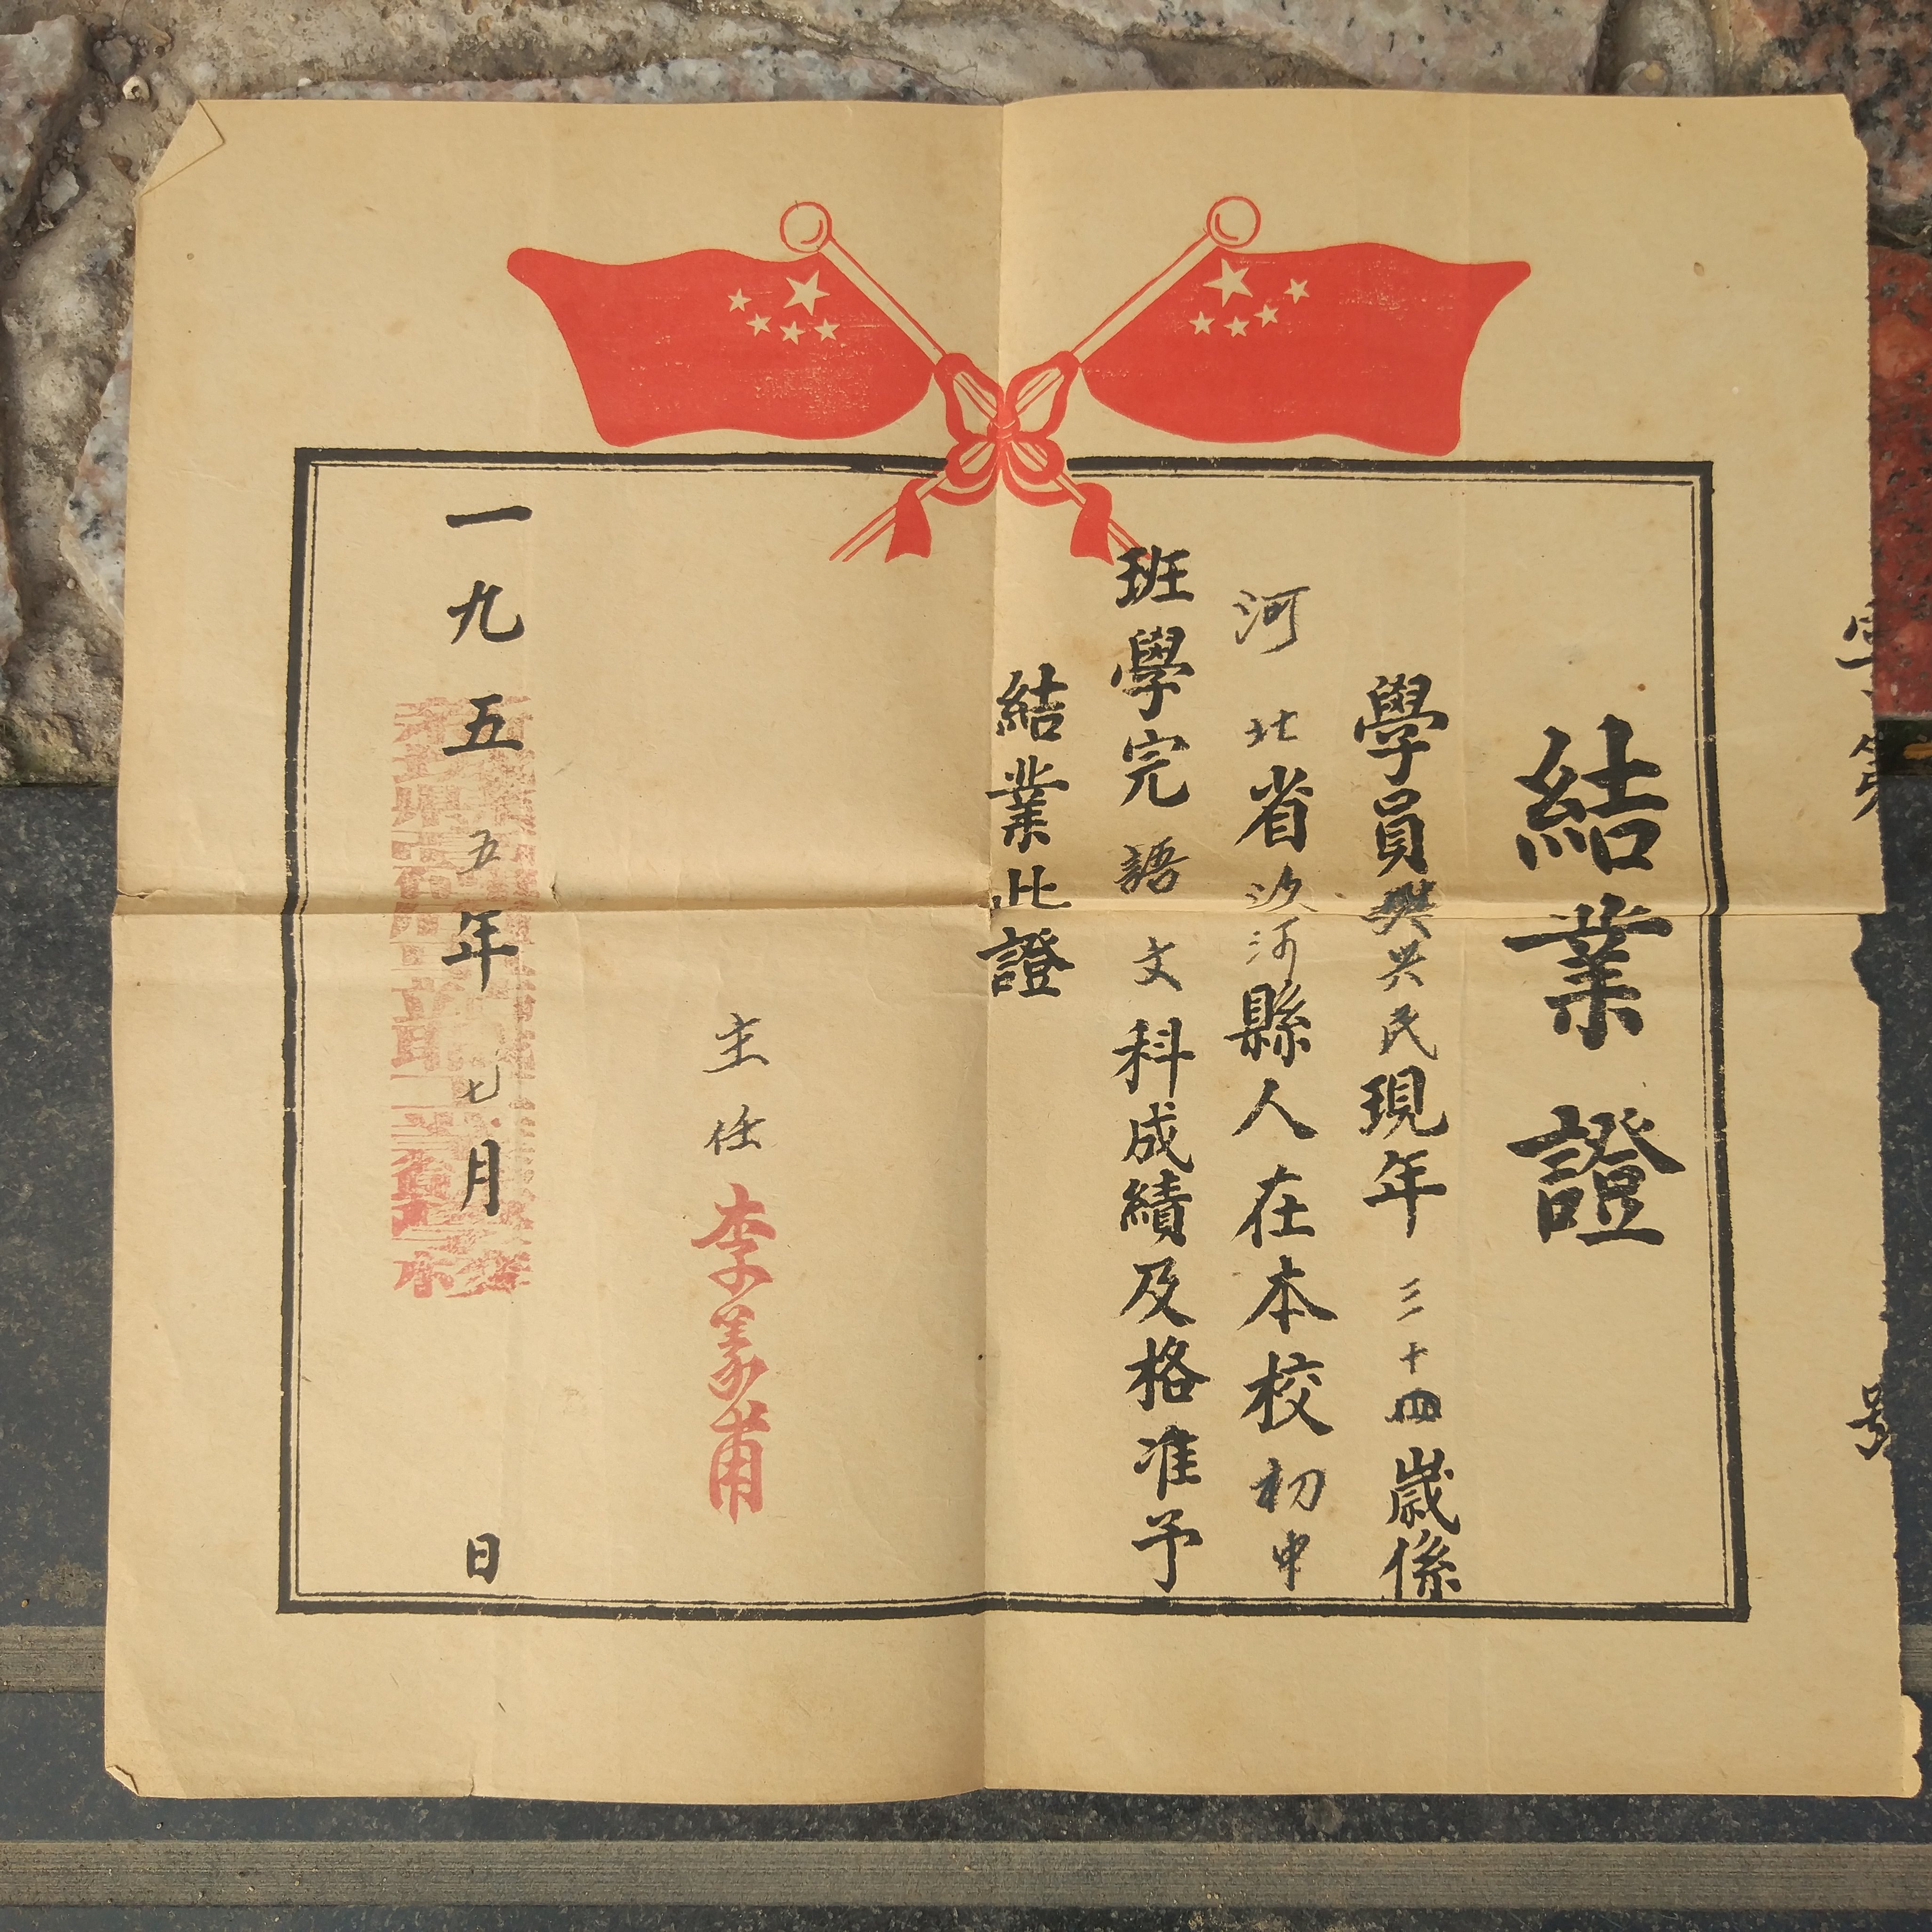 字第
號
結業證
學員樊兴民現年三十四歲係
河北省沙河縣人在本校初中
班學完語文科成績及格准予
結業此證
主任李義甫
一九五五年七月
日